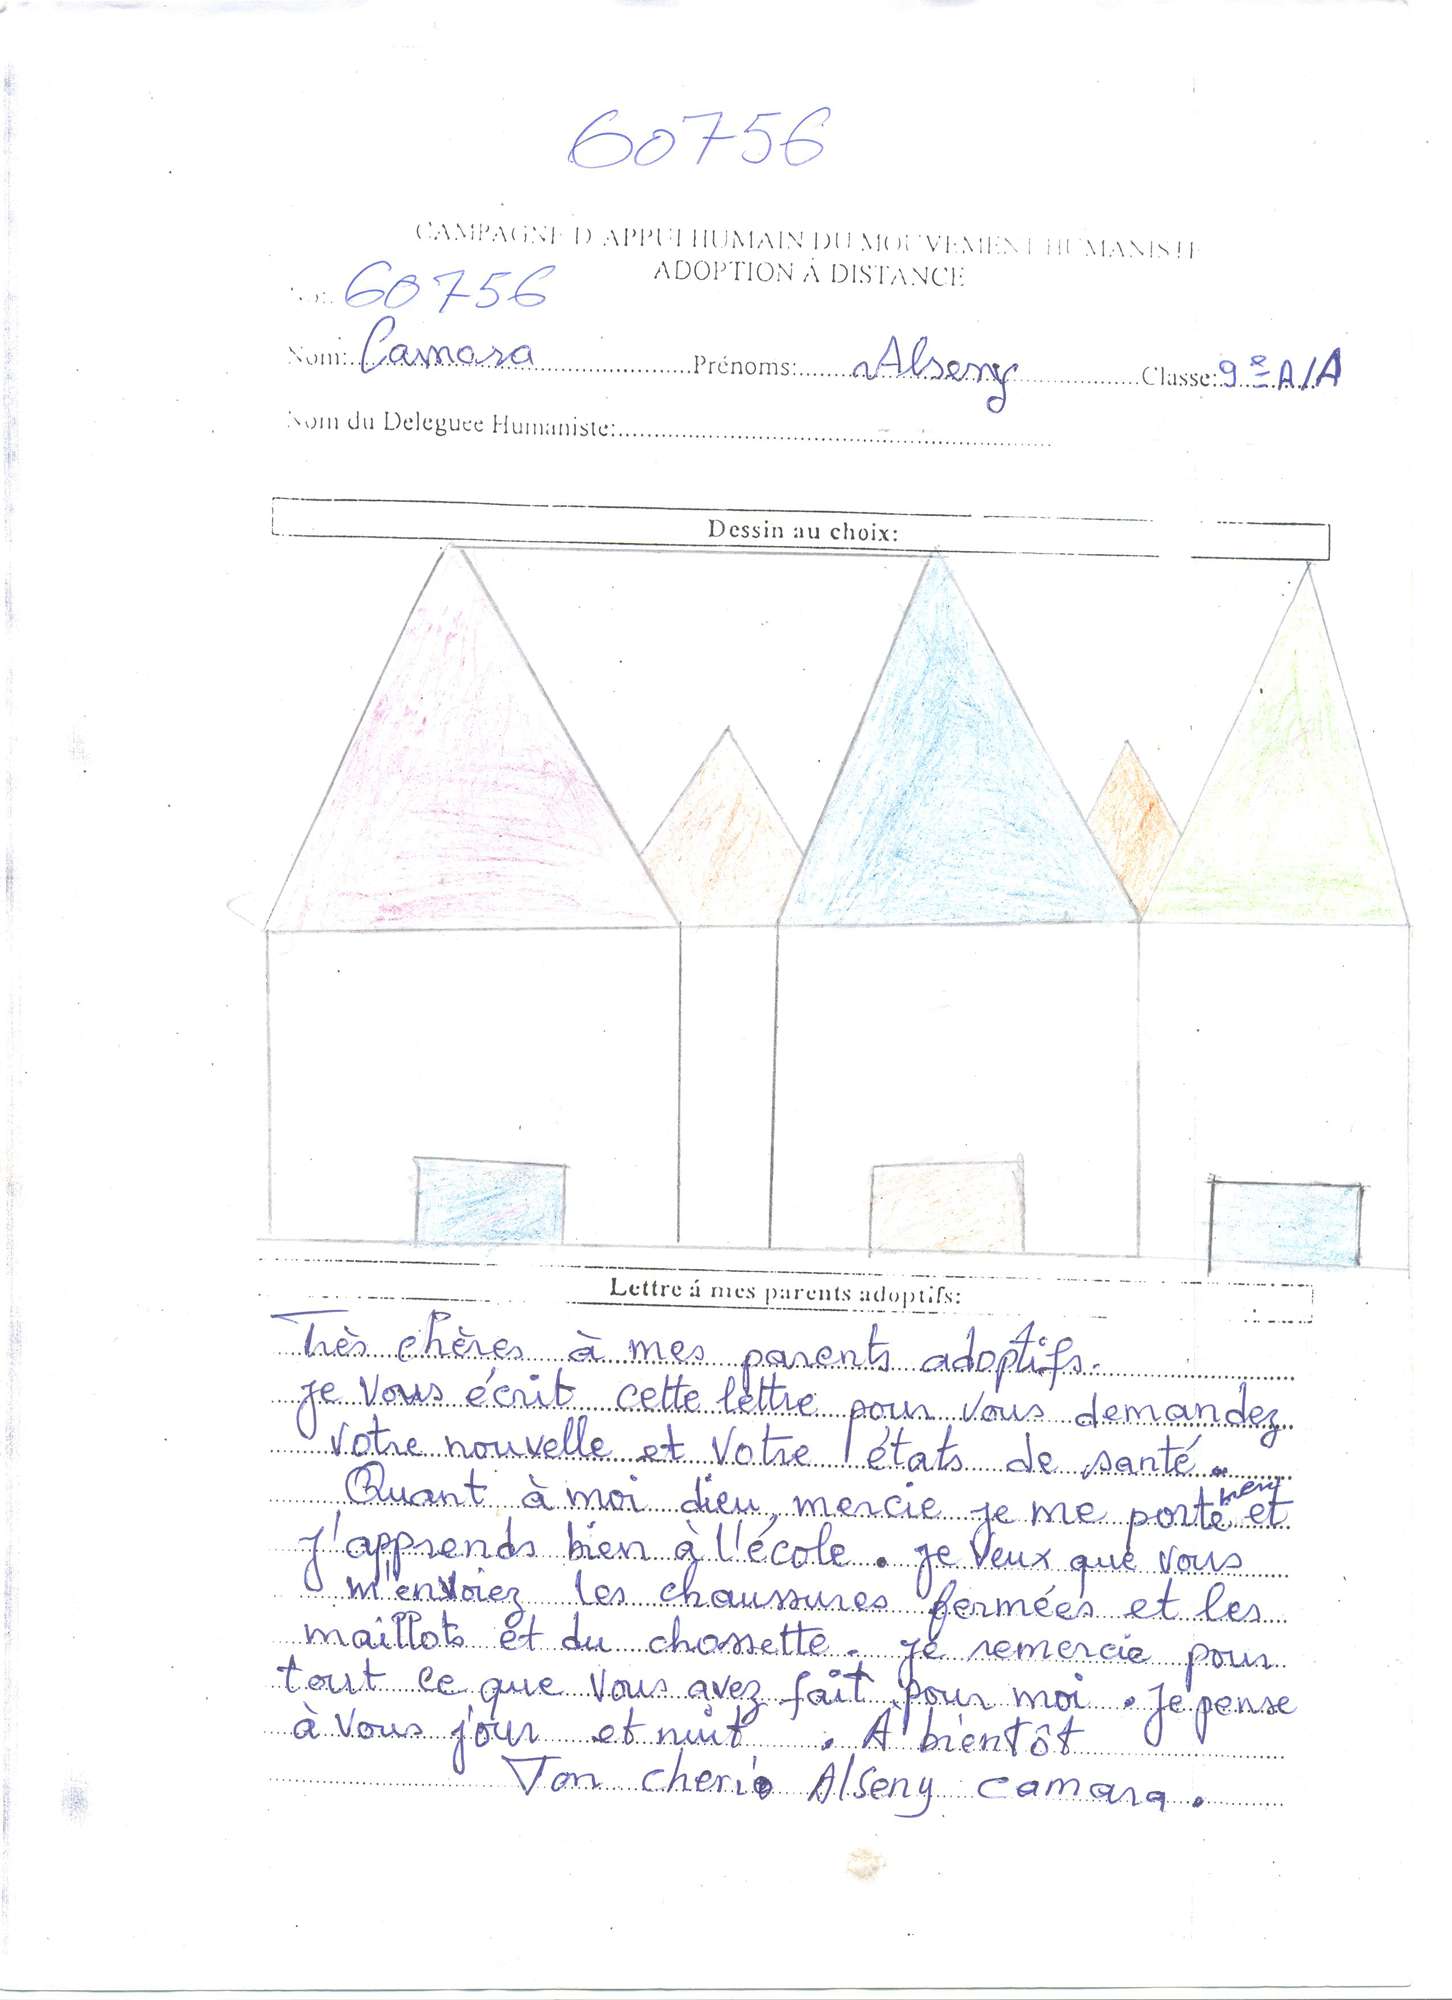 60756
CAMPAGNE D'APPUI HUMAIN DU MOUVEMENT HUMANISTE
ADOPTION À DISTANCE
60756
Nom: Camara Prénoms: Alseny Classe: 9e A/A
Nom du Deleguee Humaniste:
Dessin au choix:
Lettre á mes parents adoptifs:
Très chères à mes parents adoptifs.
je vous écrit cette lettre pour vous demandez
votre nouvelle et votre états de santé.
Quant à moi dieu, mercie je me porte et
j'apprends bien à l'école. je veux que vous
m'envoiez les chaussures fermées et les
maillots et du chossette. je remercie pour
tout ce que vous avez fait pour moi. Je pense
à vous jour et nuit. À bientôt
Ton cheri Alseny camara.